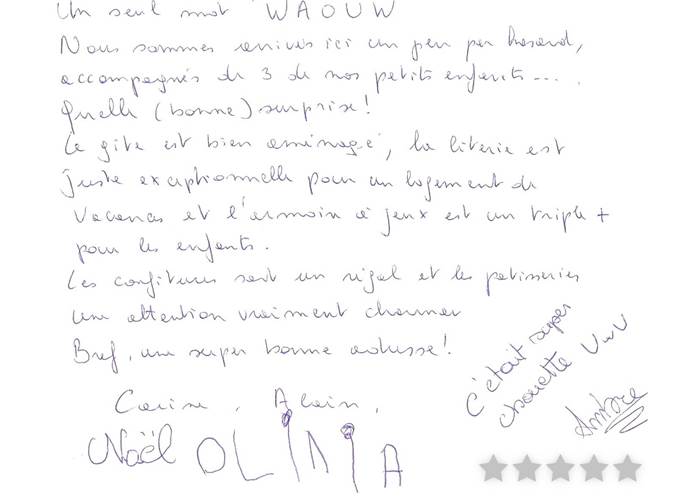 Un seul mot WAOUW
Nous sommes arrivés ici un peu par hasard,
accompagnés de 3 de nos petits enfants....
Quelle (bonne) surprise!
Le gite est bien aménagé, la literie est
juste exceptionnelle pour un logement de
vacances et l'armoire à jeux est un triple +
pour les enfants.
Les confitures sont un régal et les patisseries
une attention vraiment
Bref, une super bonne adresse!
C'était super
chouette UwU
Ambre
Carine, Alain,
Noël OLiViA